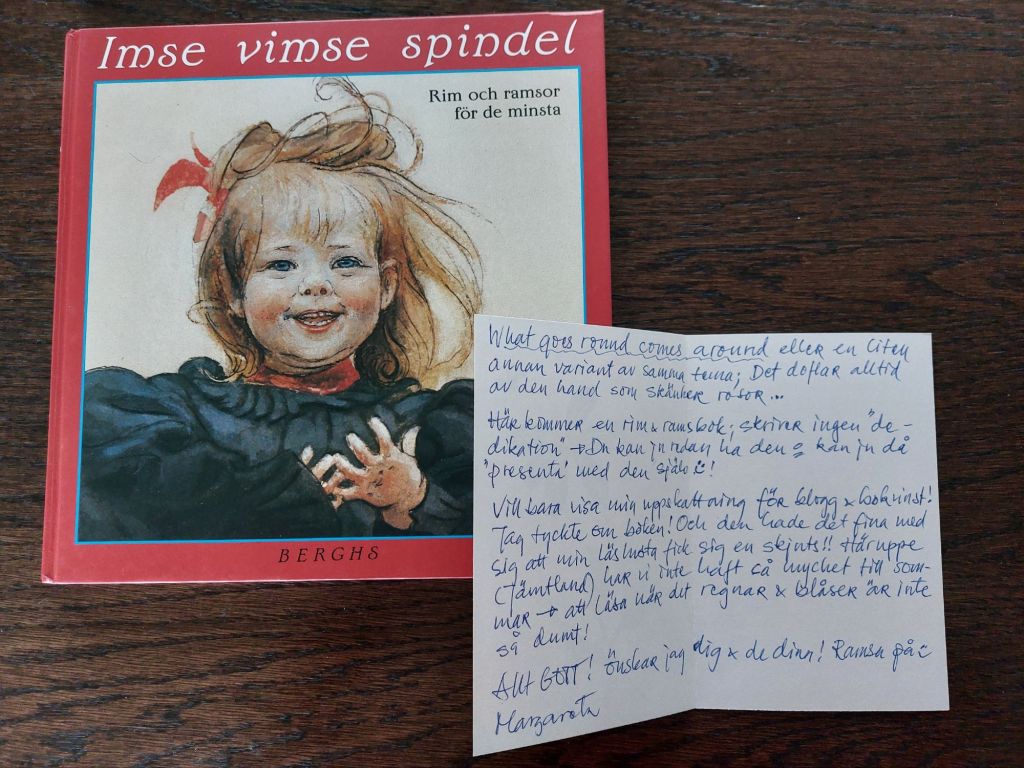 Imse vimse spindel
Rim och ramsor
för de minsta
BERGHS
What goes round comes around eller en liten
annan variant av samma tema; Det doftar alltid
av den hand som skänker rosor...
Här kommer en rim & ramsbok; skriver ingen "de-
dikation" → Du kan ju ha den kan ju då
"presenta" med den själv!
Vill bara visa min uppskattning för blogg & bokvinst!
Jag tyckte om boken! Och den hade det fina med
sig att min läslusta fick sig en skjuts!! Häruppe
(Jämtland) har vi inte haft så mycket till som-
mar → att läsa när det regnar & blåser är inte
så dumt!
Allt GOTT! önskar jag dig & de dina! Ramsa på
Margareta